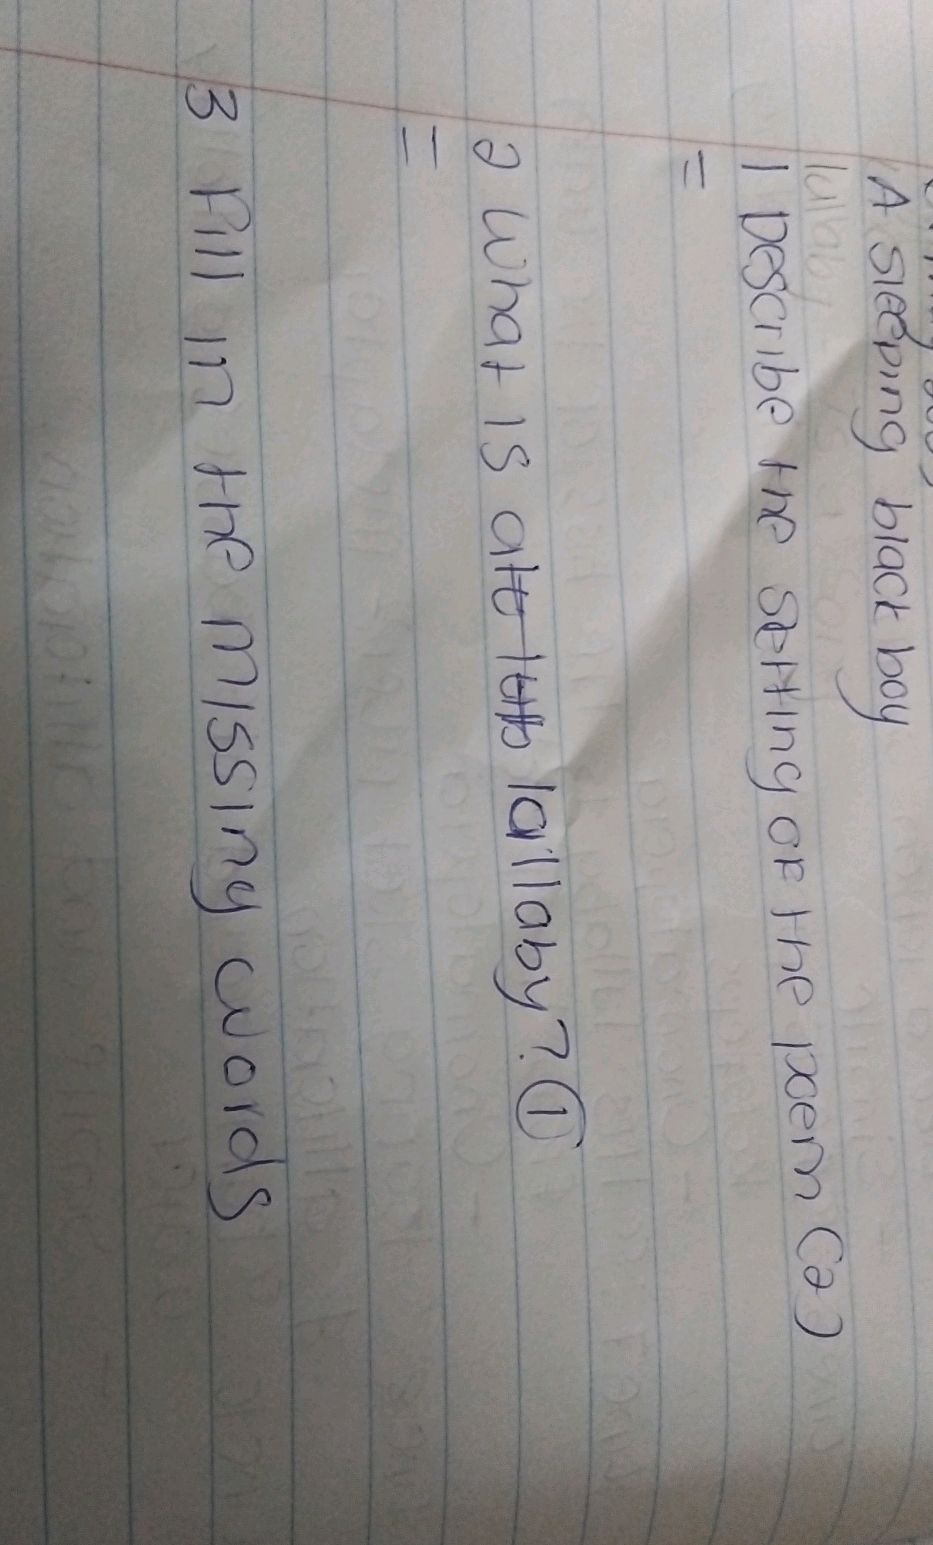 A sleeping black boy
lullaby
1 Describe the setting of the poem (2)
=
2 What is a lallaby? ①
=
3 Fill in the missing words